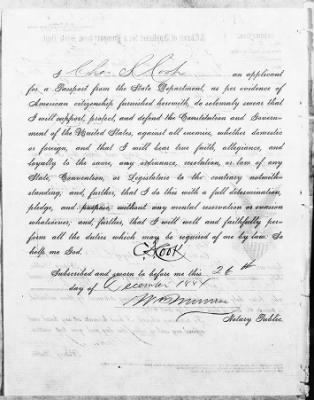 I Chas S Cook an applicant
for a Passport from the State Department, as per evidence of
American citizenship furnished herewith, do solemnly swear that
I will support, protect, and defend the Constitution and Govern-
ment of the United States, against all enemies, whether domestic
or foreign, and that I will bear true faith, allegiance, and
loyalty to the same, any ordinance, resolution or law of any
State, Convention, or Legislature to the contrary notwith-
standing; and, further, that I do this with a full determination,
pledge, and purpose, without any mental reservation or evasion
whatsoever, and, further, that I will well and faithfully per-
form all the duties which may be required of me by law. So
help me God.
Cook
Subscribed and sworn to before me this 26th
day of December 1884
Notary Public.